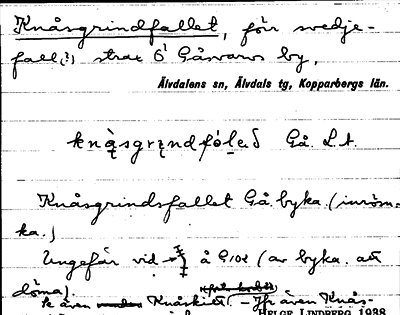 Knåsgrindfallet, förr svedje-
fall(?) strax Ö Gåsvarvs by,
Älvdalens sn, Älvdals tg, Kopparbergs län.
Gå. L.A.
Knåsgrindsfallet Gå. byka. (inröm-
ka.)
Ungefär vid å (av byka. att
döma).
Se även Knåskitt. - Jfr även Knås-
HELGE LINDBERG 1938